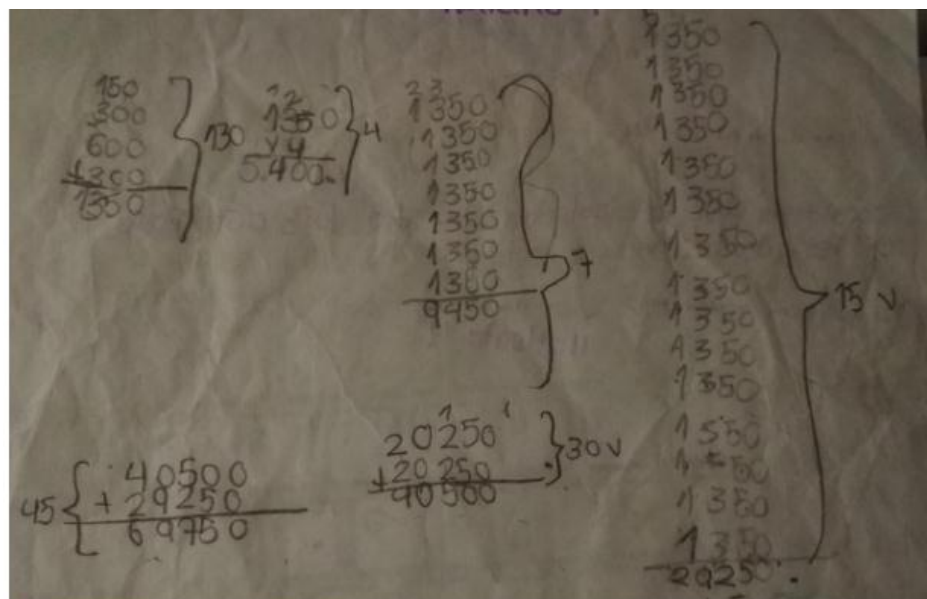 150
300
600
+300
1350
130
12
1350
x4
5.400.
4
23
1350
1350
1350
1350
1350
1350
1350
9450
7
1350
1350
1350
1350
1350
1350
1350
1350
1350
1350
1350
1350
1350
1350
1350
20250.
15 v
1
20250
+20250
40500
30 v
45
40500
+ 29250
69750